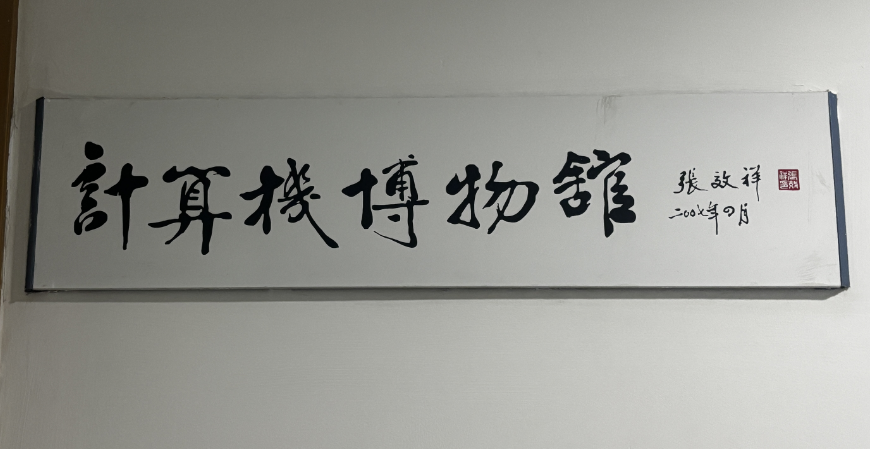 計算機博物舘
張效祥
二〇〇七年四月